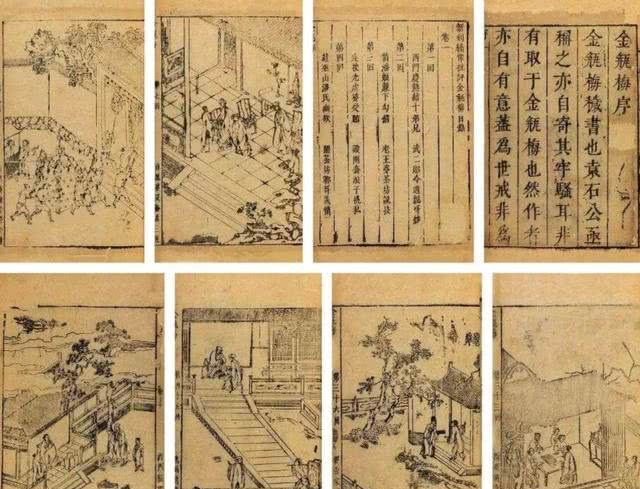 金瓶梅序
金瓶梅穢書也袁石公亟
稱之亦自寄其牢騷耳非
有取于金瓶梅也然作者
亦自有意蓋為世戒非為
新刻繡像批評金瓶梅目錄
卷一
第一回
西門慶熱結十弟兄 武二郎冷遇親哥嫂
第二回
俏潘娘簾下勾情 老王婆茶坊說技
第三回
定挨光虔婆受賄 設圈套浪子挑私
第四回
赴巫山潘氏幽歡 鬧茶坊鄆哥義憤